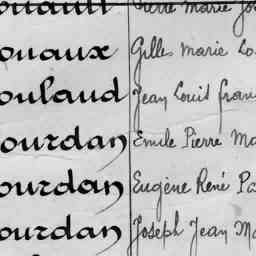 onault Pierre Marie Jos
onaux Gilles Marie Lo
oulaud Jean Louis Fran
ourdan Emile Pierre Ma
ourdan Eugène René Pa
ourdan Joseph Jean Ma